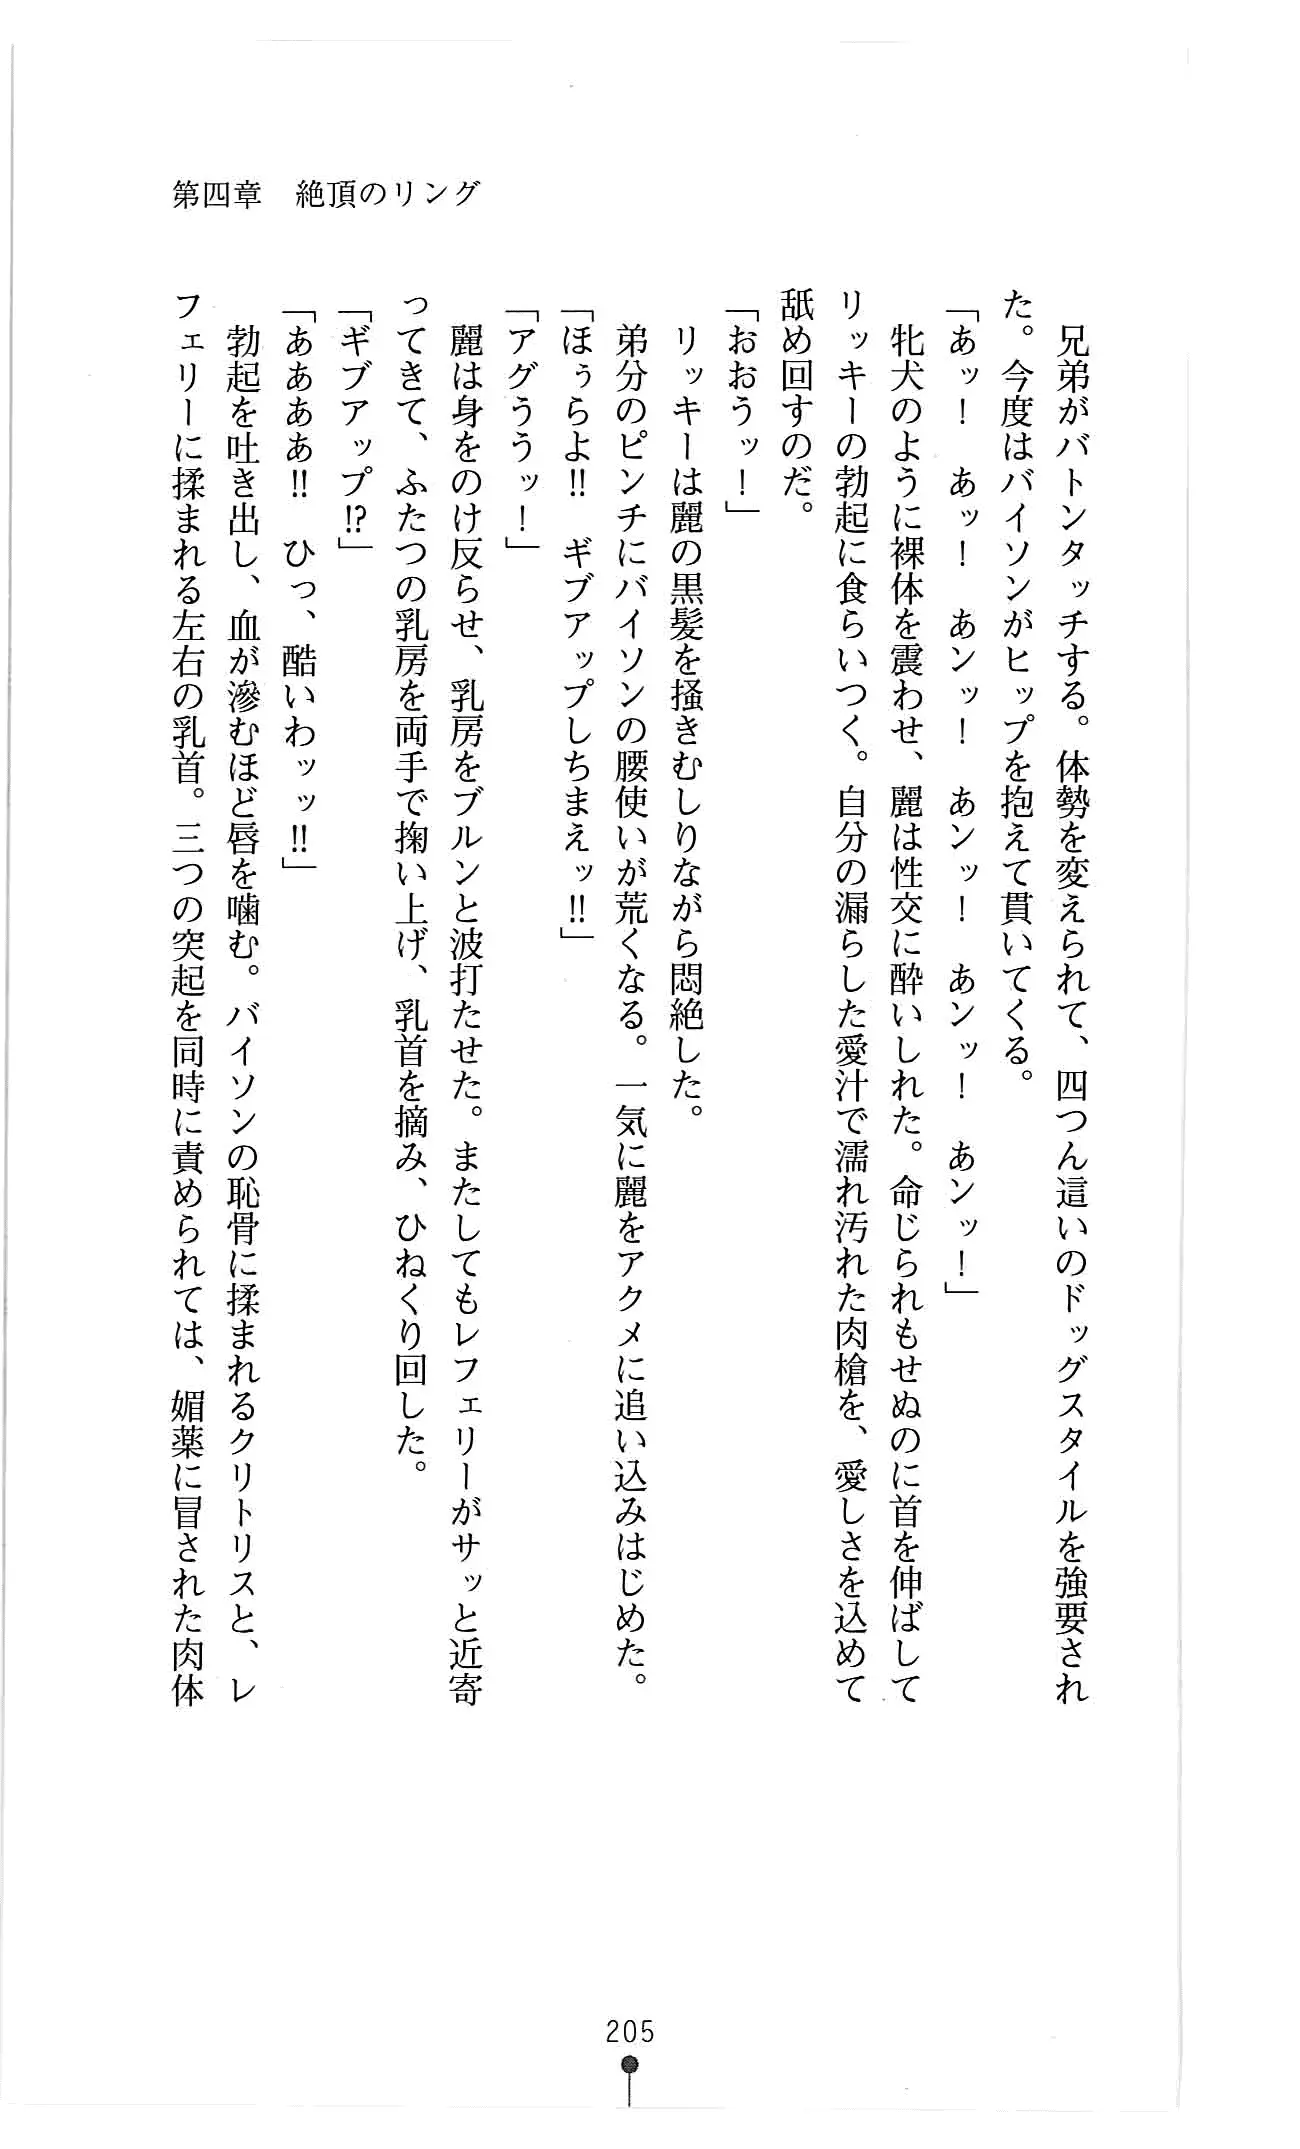 第四章　絶頂のリング
　兄弟がバトンタッチする。体勢を変えられて、四つん這いのドッグスタイルを強要され
た。今度はバイソンがヒップを抱えて貫いてくる。
「あッ！　あッ！　あンッ！　あンッ！　あンッ！　あンッ！」
　牝犬のように裸体を震わせ、麗は性交に酔いしれた。命じられもせぬのに首を伸ばして
リッキーの勃起に食らいつく。自分の漏らした愛汁で濡れ汚れた肉槍を、愛しさを込めて
舐め回すのだ。
「おおうッ！」
　リッキーは麗の黒髪を掻きむしりながら悶絶した。
　弟分のピンチにバイソンの腰使いが荒くなる。一気に麗をアクメに追い込みはじめた。
「ほぅらよ!!　ギブアップしちまえッ!!」
「アグううッ！」
　麗は身をのけ反らせ、乳房をブルンと波打たせた。またしてもレフェリーがサッと近寄
ってきて、ふたつの乳房を両手で掬い上げ、乳首を摘み、ひねくり回した。
「ギブアップ!?」
「ああああ!!　ひっ、酷いわッッ!!」
　勃起を吐き出し、血が滲むほど唇を噛む。バイソンの恥骨に揉まれるクリトリスと、レ
フェリーに揉まれる左右の乳首。三つの突起を同時に責められては、媚薬に冒された肉体
205